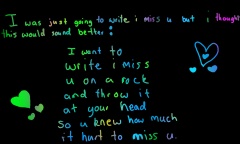 I was just going to write i miss u but i thought
this would sound better:
I want to
write i miss
u on a rock
and throw it
at your head
So u knew how much
it hurt to miss u.